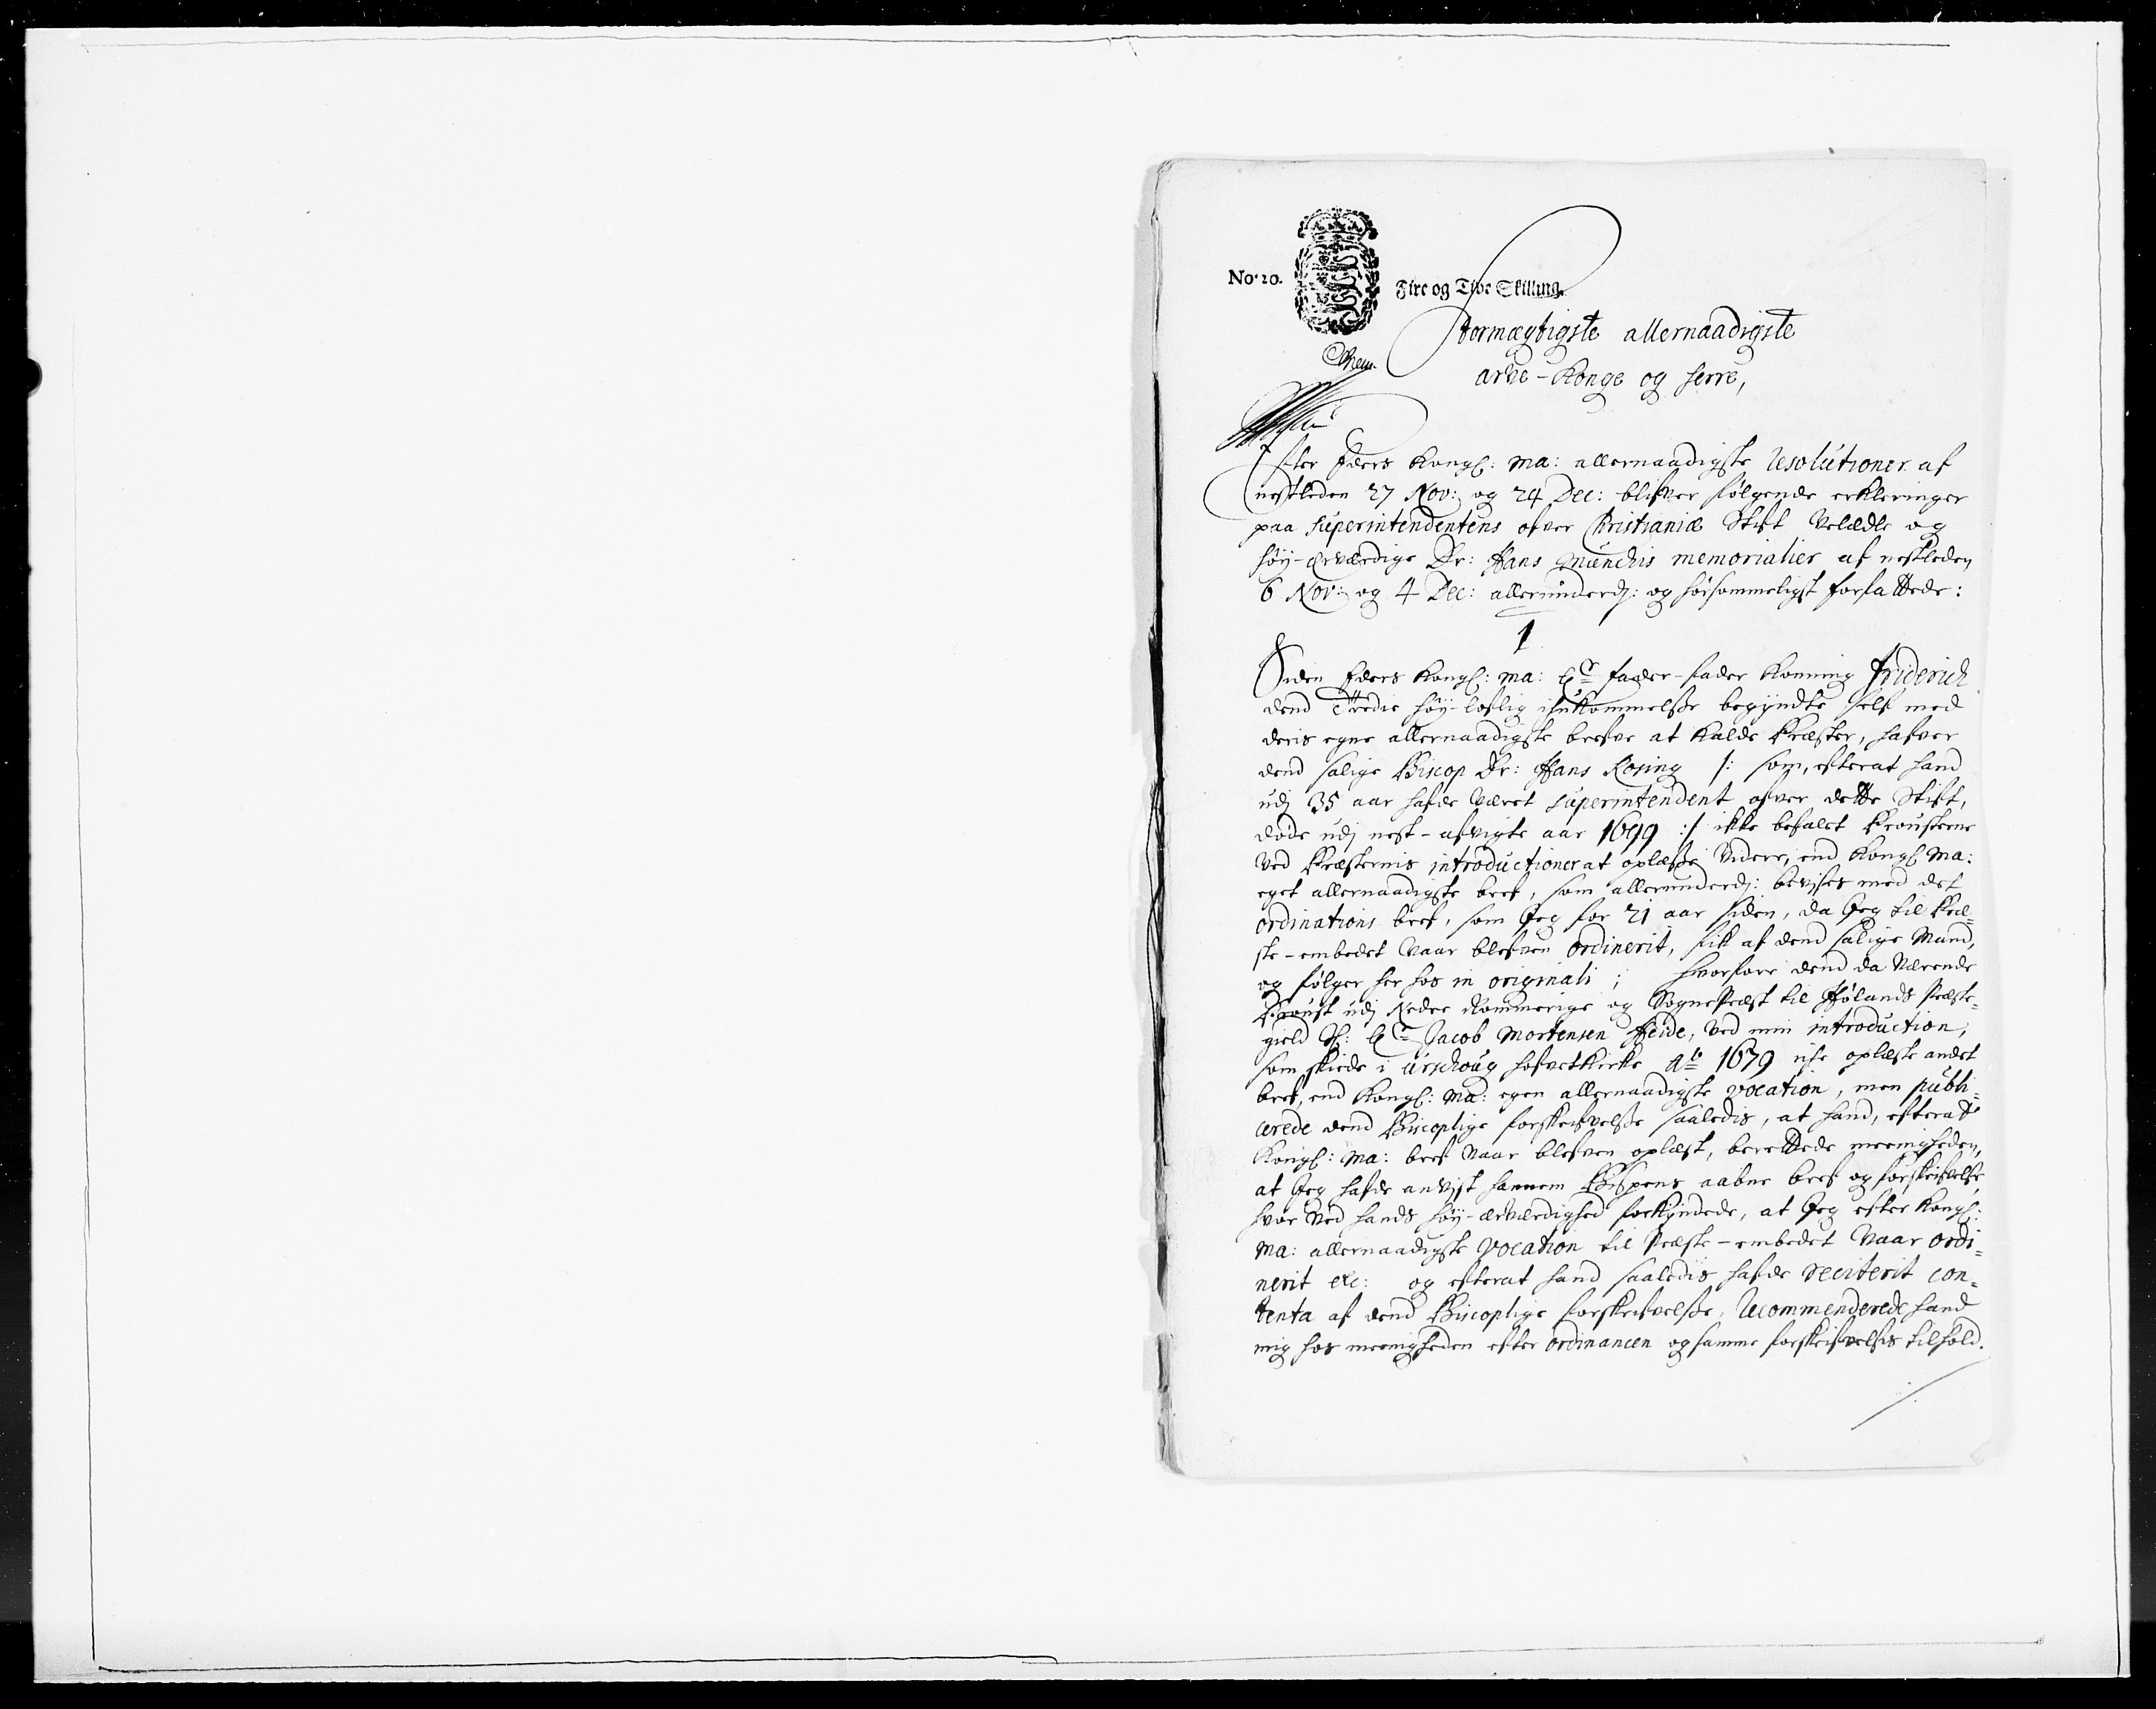 No. 20.
Fire og Tive Skilling.
Stormægtigste allernaadigste
arve-Konge og herre,
Efter Eders Kongl: Ma: allernaadigste Resolutioner af
nestleden 27 Nov: og 24 Dec: blifver følgende erkleringer
paa Superintendentens ofver Christianiæ Stift Velædle og
høy-ærværdige Dr: Hans Munchis memorialier af nestleden
6 Nov: og 4 Dec: allerunderd: og hørsommeligst forfattede:
1
Siden Eders Kongl: Ma: fader-fader Konning Friderich
dend Tredie høy-loflig ihukommelsse begyndte self med
deris egne allernaadigste brefve at kalde Præster, hafver
dend salige Biscop Dr: Hans Rosing /: som, efterat hand
udj 35 aar hafde været Superintendent ofver dette Stift,
døde udj nest-afvigte aar 1699 :/ ikke befalet Prousterne
ved Præsternis introductioner at oplæsse videre, end Kongl Ma:
eget allernaadigste bref, som allerunderd: bevises med det
ordinations bref, som Jeg for 21 aar siden, da Jeg til Præ-
ste-embedet vaar blefven ordinerit, fik af dend salige Mand,
og følger her hos in originali; hvorfore dend da værende
Proust udj Nedre Rommerige og SognePræst til Hølands Præste-
gield Jacob Mortensen Heide, ved min introduction,
som skiede i Urschoug hofvetkirke Ao 1679 icke oplæste andet
bref, end Kongl: Ma: egen allernaadigste vocation, men publi-
cerede dend Biscoplige forskrifvelsse saaledis, at hand, efterat
Kongl: Ma: bref vaar blefven oplæst, berettede meenigheden,
at Jeg hafde anvist hannem Bispens aabne bref og forskrifvelse
hvor ved hands høy-ærværdighed forkyndede, at Jeg efter Kongl:
Ma: allernaadigste vocation til Præste-embedet vaar ordi-
nerit etc: og efterat hand saaledis hafde reciterit con-
tenta af dend Biscoplige forskrifvelsse, Recommenderede hand
mig hos meenigheden efter ordinancen og samme forskrifvelsis tilhold.